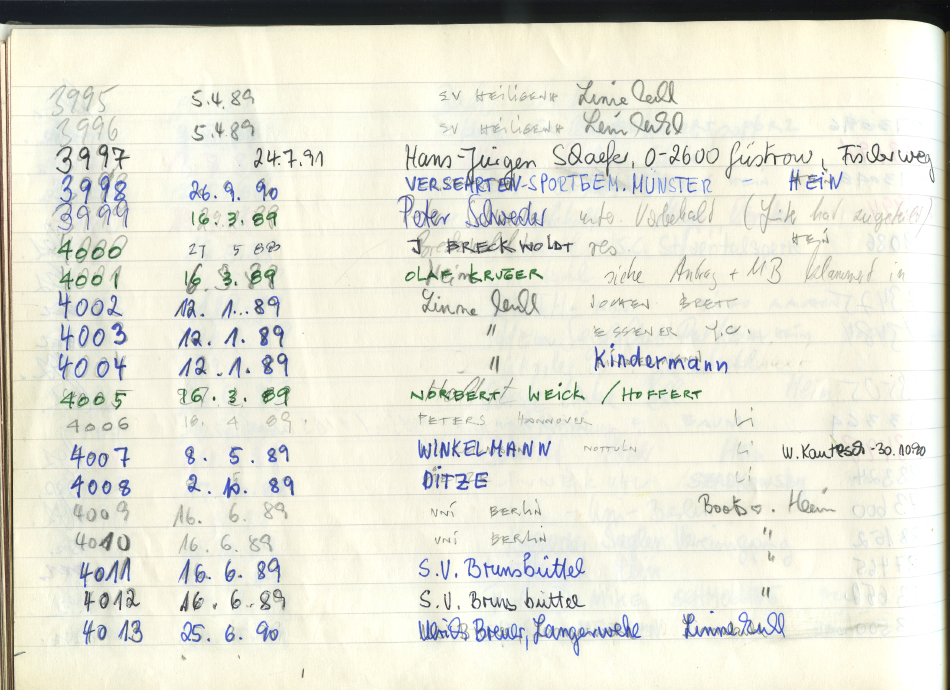 3995 5.4.89 SV HEILIGENH Linnekuhl
3996 5.4.89 SV HEILIGENH
3997 24.7.91 Hans-Jürgen Schaefer, O-2600 Güstrow, Fischerweg
3998 26.9.90 VERSEHRTEN-SPORTGEM. MÜNSTER - HEIN
3999 16.3.89 Peter Schweder unter Vorbehalt
4000 27 5 89 J BRECKWOLDT HEIN
4001 16.3.89 OLAF KRUGER siehe Antrag + MB in
4002 12.1.89 JOCHEN BRETT
4003 12.1.89 " ESSENER Y.C.
4004 12.1.89 " Kindermann
4005 16.3.89 NORBERT WEICK / HOFFERT
4006 18. 4 89. PETERS HANNOVER Li
4007 8. 5. 89 WINKELMANN NOTTULN Li W. Kautzsch -30.10.90
4008 2. 10. 89 DITZE Li
4009 16. 6. 89 UNI BERLIN Hein
4010 16. 6. 89 UNI BERLIN "
4011 16. 6. 89 S.V. Brunsbüttel "
4012 16. 6. 89 S.V. Brunsbüttel "
4013 25. 6. 90 Ulrich Breuer, Langerwehe